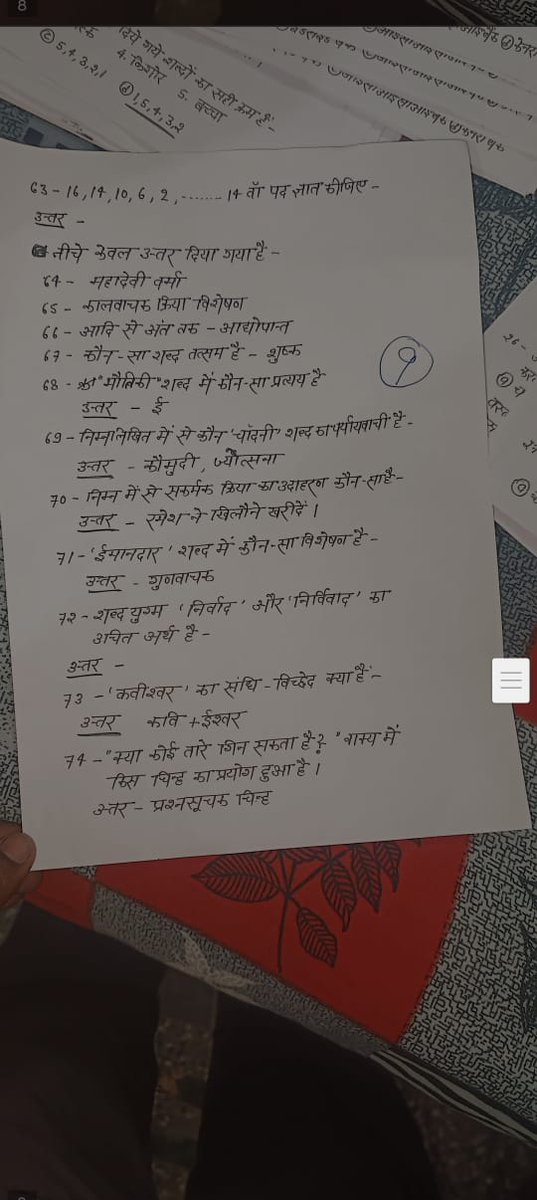 8
दिये गये शब्दों का सही क्रम है -
4. किशोर 5. बच्चा
Ⓒ 5,4,3,2,1
ⓓ 1,5,4,3,2
63 - 16, 14, 10, 6, 2, ....... 14 वॉ पद ज्ञात कीजिए -
उत्तर -
नीचे केवल उत्तर दिया गया है -
64 - महादेवी वर्मा
65 - कालवाचक क्रिया विशेषण
66 - आदि से अंत तक - आद्योपान्त
67 - कौन-सा शब्द तत्सम है - शुष्क
9
68 - "मौतिकी" शब्द में कौन-सा प्रत्यय है
उत्तर - ई
69 - निम्नलिखित में से कौन 'चाँदनी' शब्द का पर्यायवाची है -
उत्तर - कौमुदी, ज्योत्सना
70 - निम्न में से सकर्मक क्रिया का उदाहरण कौन-सा है -
उत्तर - रमेश ने खिलौने खरीदें ।
71 - 'ईमानदार' शब्द में कौन-सा विशेषण है -
उत्तर - गुणवाचक
72 - शब्द युग्म 'निर्वाद' और 'निर्विवाद' का
उचित अर्थ है -
उत्तर -
73 - 'कवीश्वर' का संधि-विच्छेद क्या है -
उत्तर कवि + ईश्वर
74 - "क्या कोई तारे गिन सकता है ? " वाक्य में
किस चिन्ह का प्रयोग हुआ है ।
उत्तर - प्रश्नसूचक चिन्ह